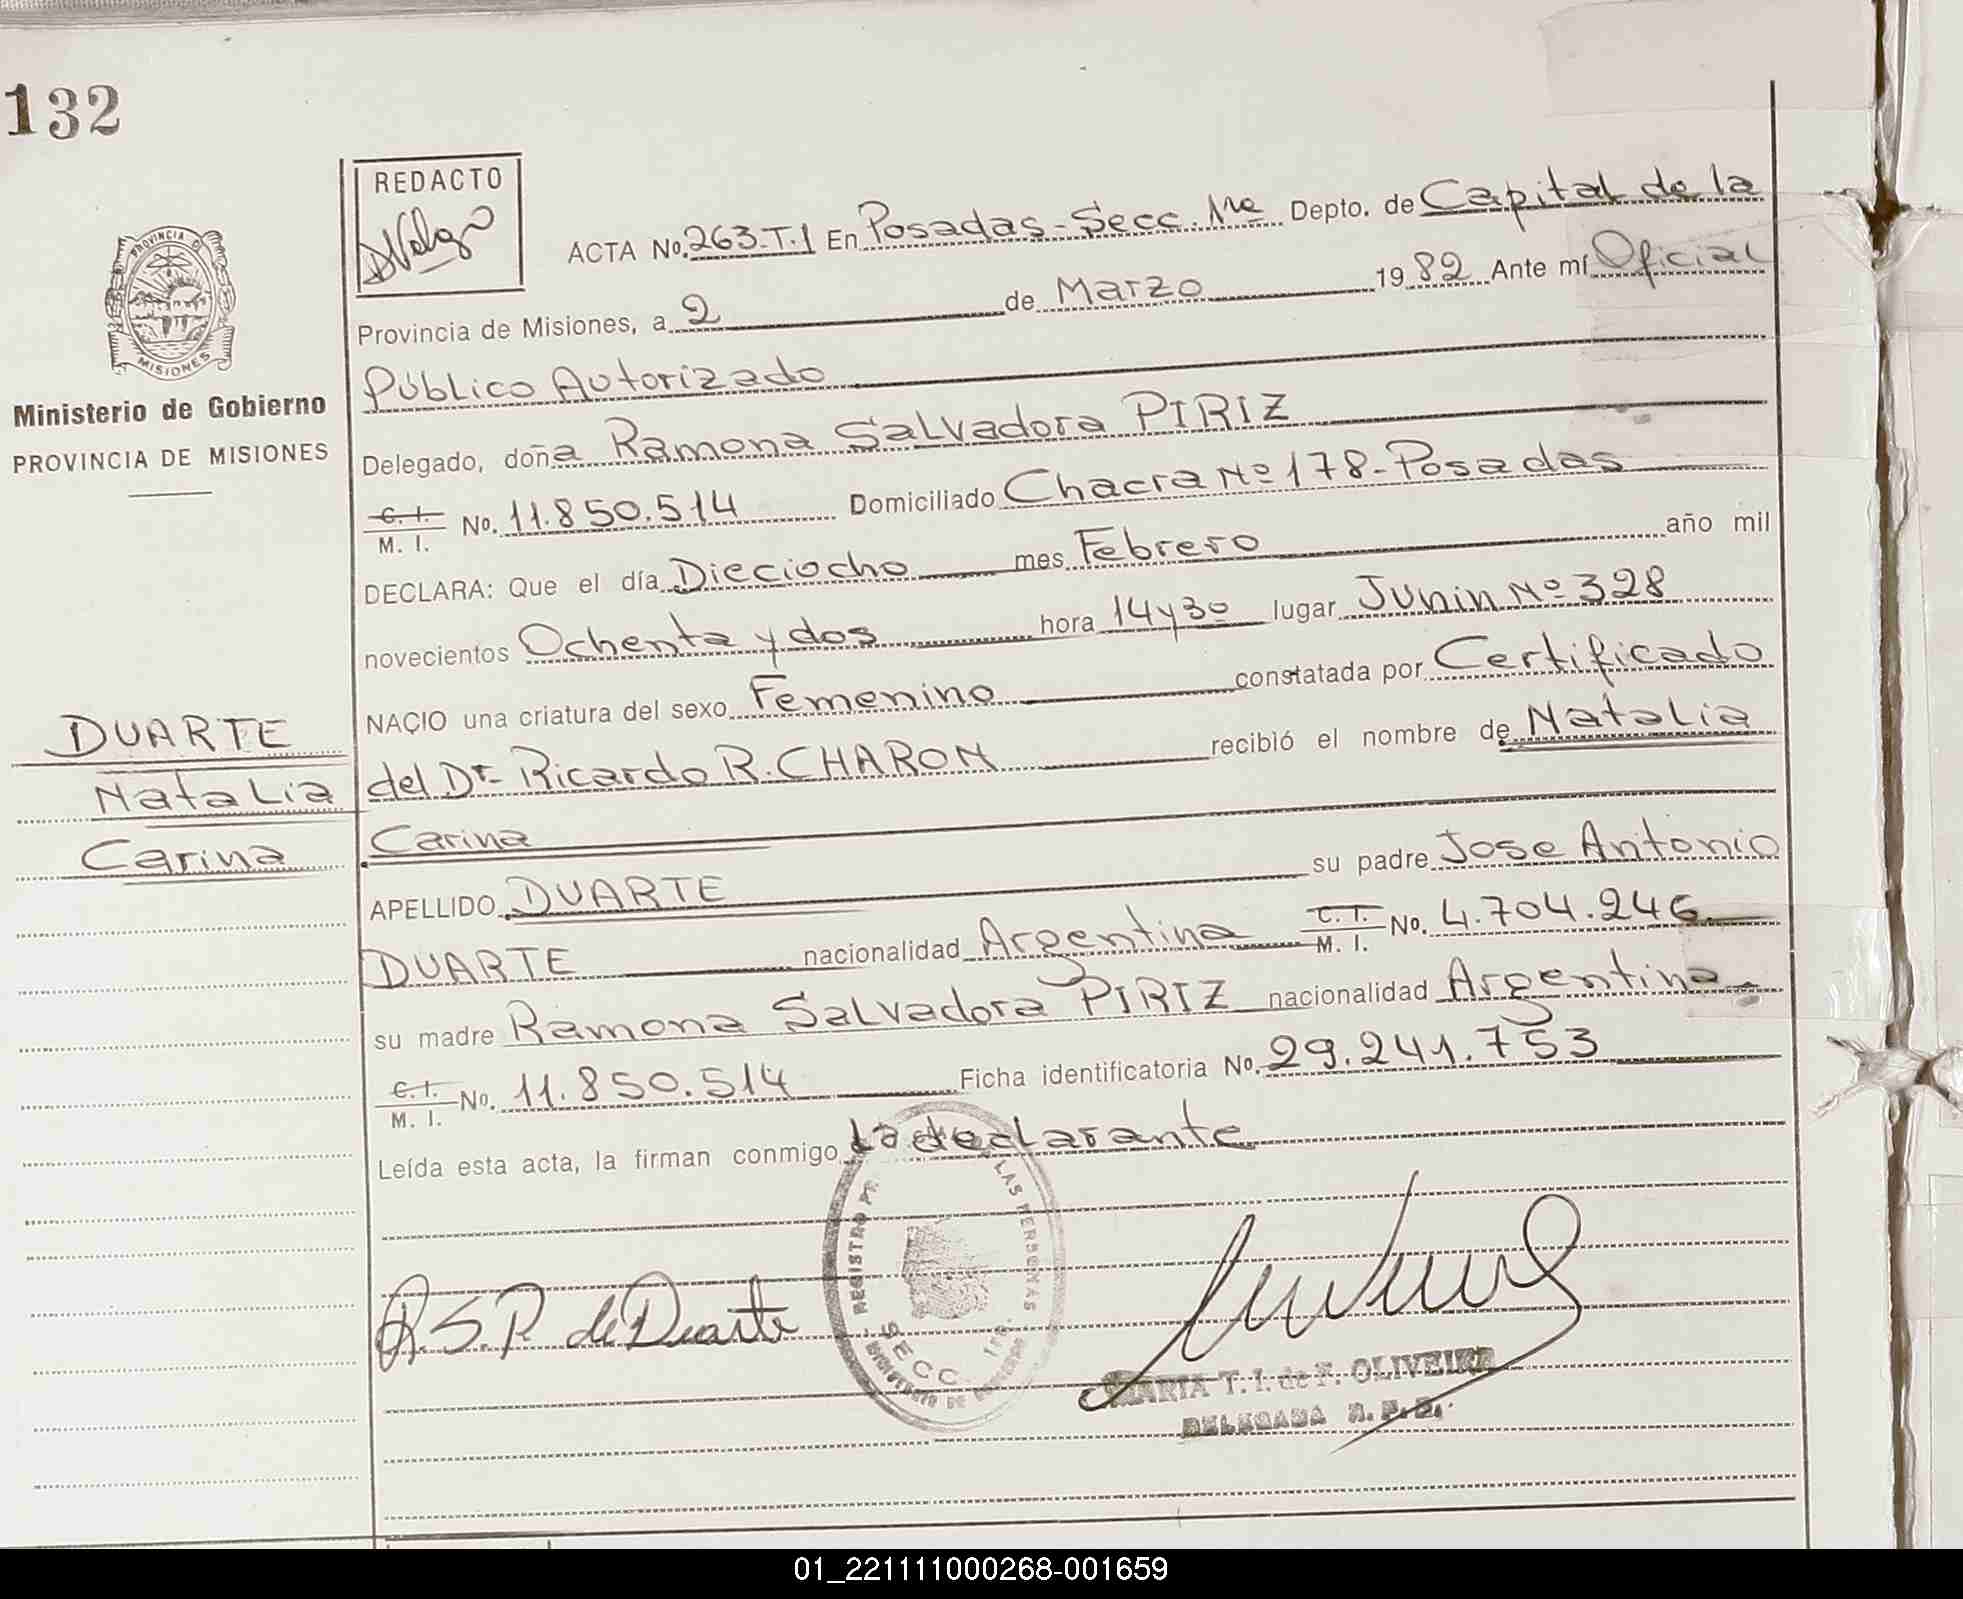 132
REDACTO
ACTA No. 263.T.1 En Posadas-Secc. 1ra Depto. de Capital de la
Provincia de Misiones, a 2 de Marzo 1982 Ante mí Oficial
PROVINCIA DE
MISIONES
Ministerio de Gobierno
PROVINCIA DE MISIONES
Público Autorizado
Delegado, doña Ramona Salvadora PIRIZ
C. I.
M. I. No. 11.850.514 Domiciliado Chacra Nº 178-Posadas
DECLARA: Que el día Dieciocho mes Febrero año mil
novecientos Ochenta y dos hora 14 y 30 lugar Junin Nº 328
NACIO una criatura del sexo Femenino constatada por Certificado
DUARTE
Natalia
Carina
del Dr. Ricardo R. CHARON recibió el nombre de Natalia
Carina
APELLIDO DUARTE su padre Jose Antonio
DUARTE nacionalidad Argentina C. I. M. I. No. 4.704.246
su madre Ramona Salvadora PIRIZ nacionalidad Argentina
C. I.
M. I. No. 11.850.514 Ficha identificatoria No. 29.241.753
Leída esta acta, la firman conmigo La declarante
REGISTRO LAS PERSONAS
SECC. 1ra.
R.S.P. de Duarte
MARIA T. I. de F. OLIVEIRA
DELEGADA R. P. P.
01_221111000268-001659